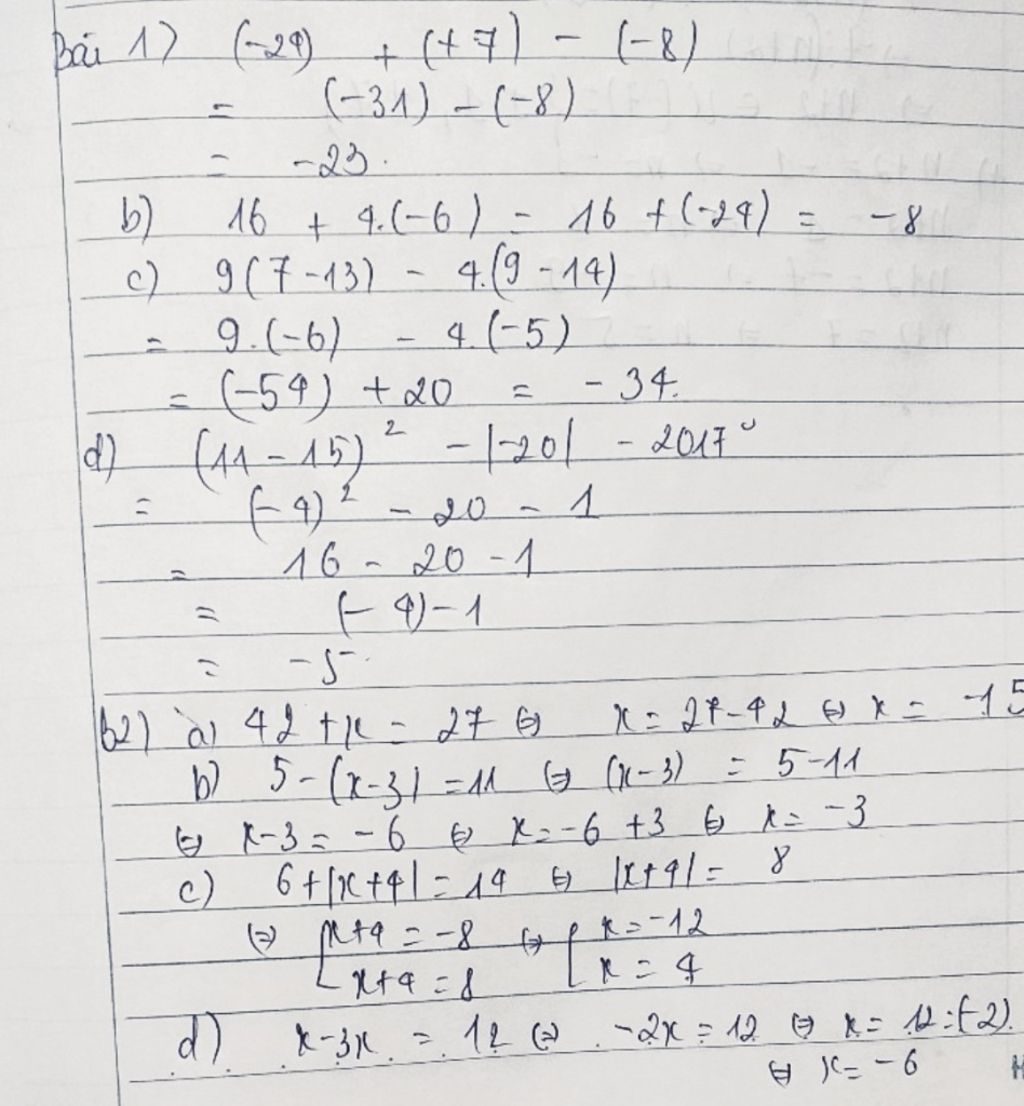 Bài 1) (-24) + (+7) - (-8)
= (-31) - (-8)
= -23.
b) 16 + 4.(-6) = 16 + (-24) = -8
c) 9(7-13) - 4.(9-14)
= 9.(-6) - 4.(-5)
= (-54) + 20 = -34.
d) (11-15)² - |-20| - 2017⁰
= (-4)² - 20 - 1
= 16 - 20 - 1
= (-4) - 1
= -5.
b2) a) 42 + x = 27 ⇔ x = 27-42 ⇔ x = -15
b) 5-(x-3) = 11 ⇔ (x-3) = 5-11
⇔ x-3 = -6 ⇔ x = -6 +3 ⇔ x = -3
c) 6+|x+4| = 14 ⇔ |x+4| = 8
⇔ [x+4 = -8 ⇔ [x = -12
x+4 = 8 x = 4
d) x-3x = 12 ⇔ -2x = 12 ⇔ x = 12:(-2)
⇔ x = -6